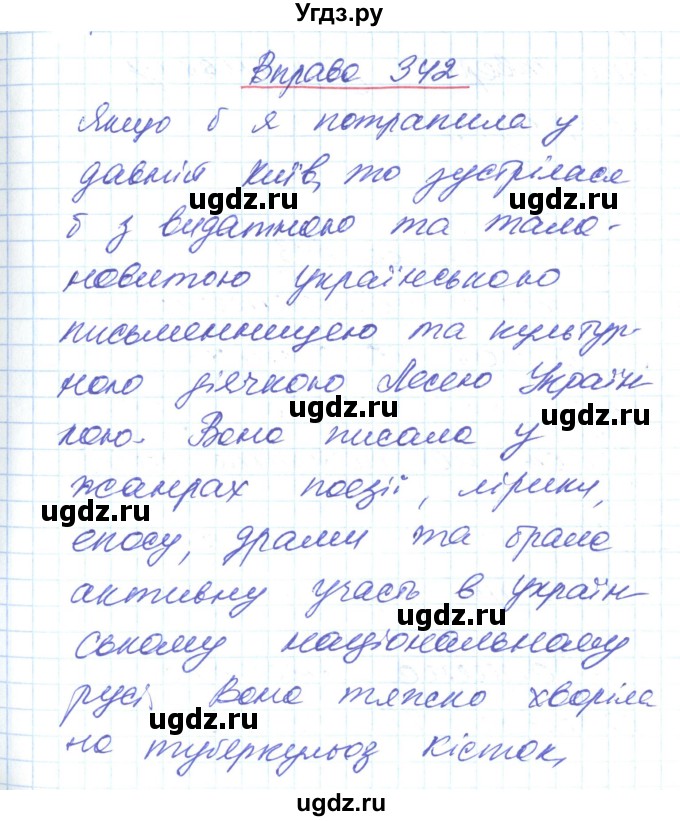 Угдз.ру
Вправа 342
Якщо б я потрапила у
давній Київ, то зустрілася
ugdz.ru
ugdz.ru
б з видатною та тала-
новитою українською
письменницею та культур-
ною діячкою Лесею Украін-
ugdz.ru
ugdz.ru
кою. Вона писала у
жанрах поезії, лірики,
ugdz.ru
епосу, драми та брала
активну участь в україн-
ugdz.ru
ському національному
русі. Вона тяжко хворіла
ugdz.ru
на туберкульоз кісток,
ugdz.ru